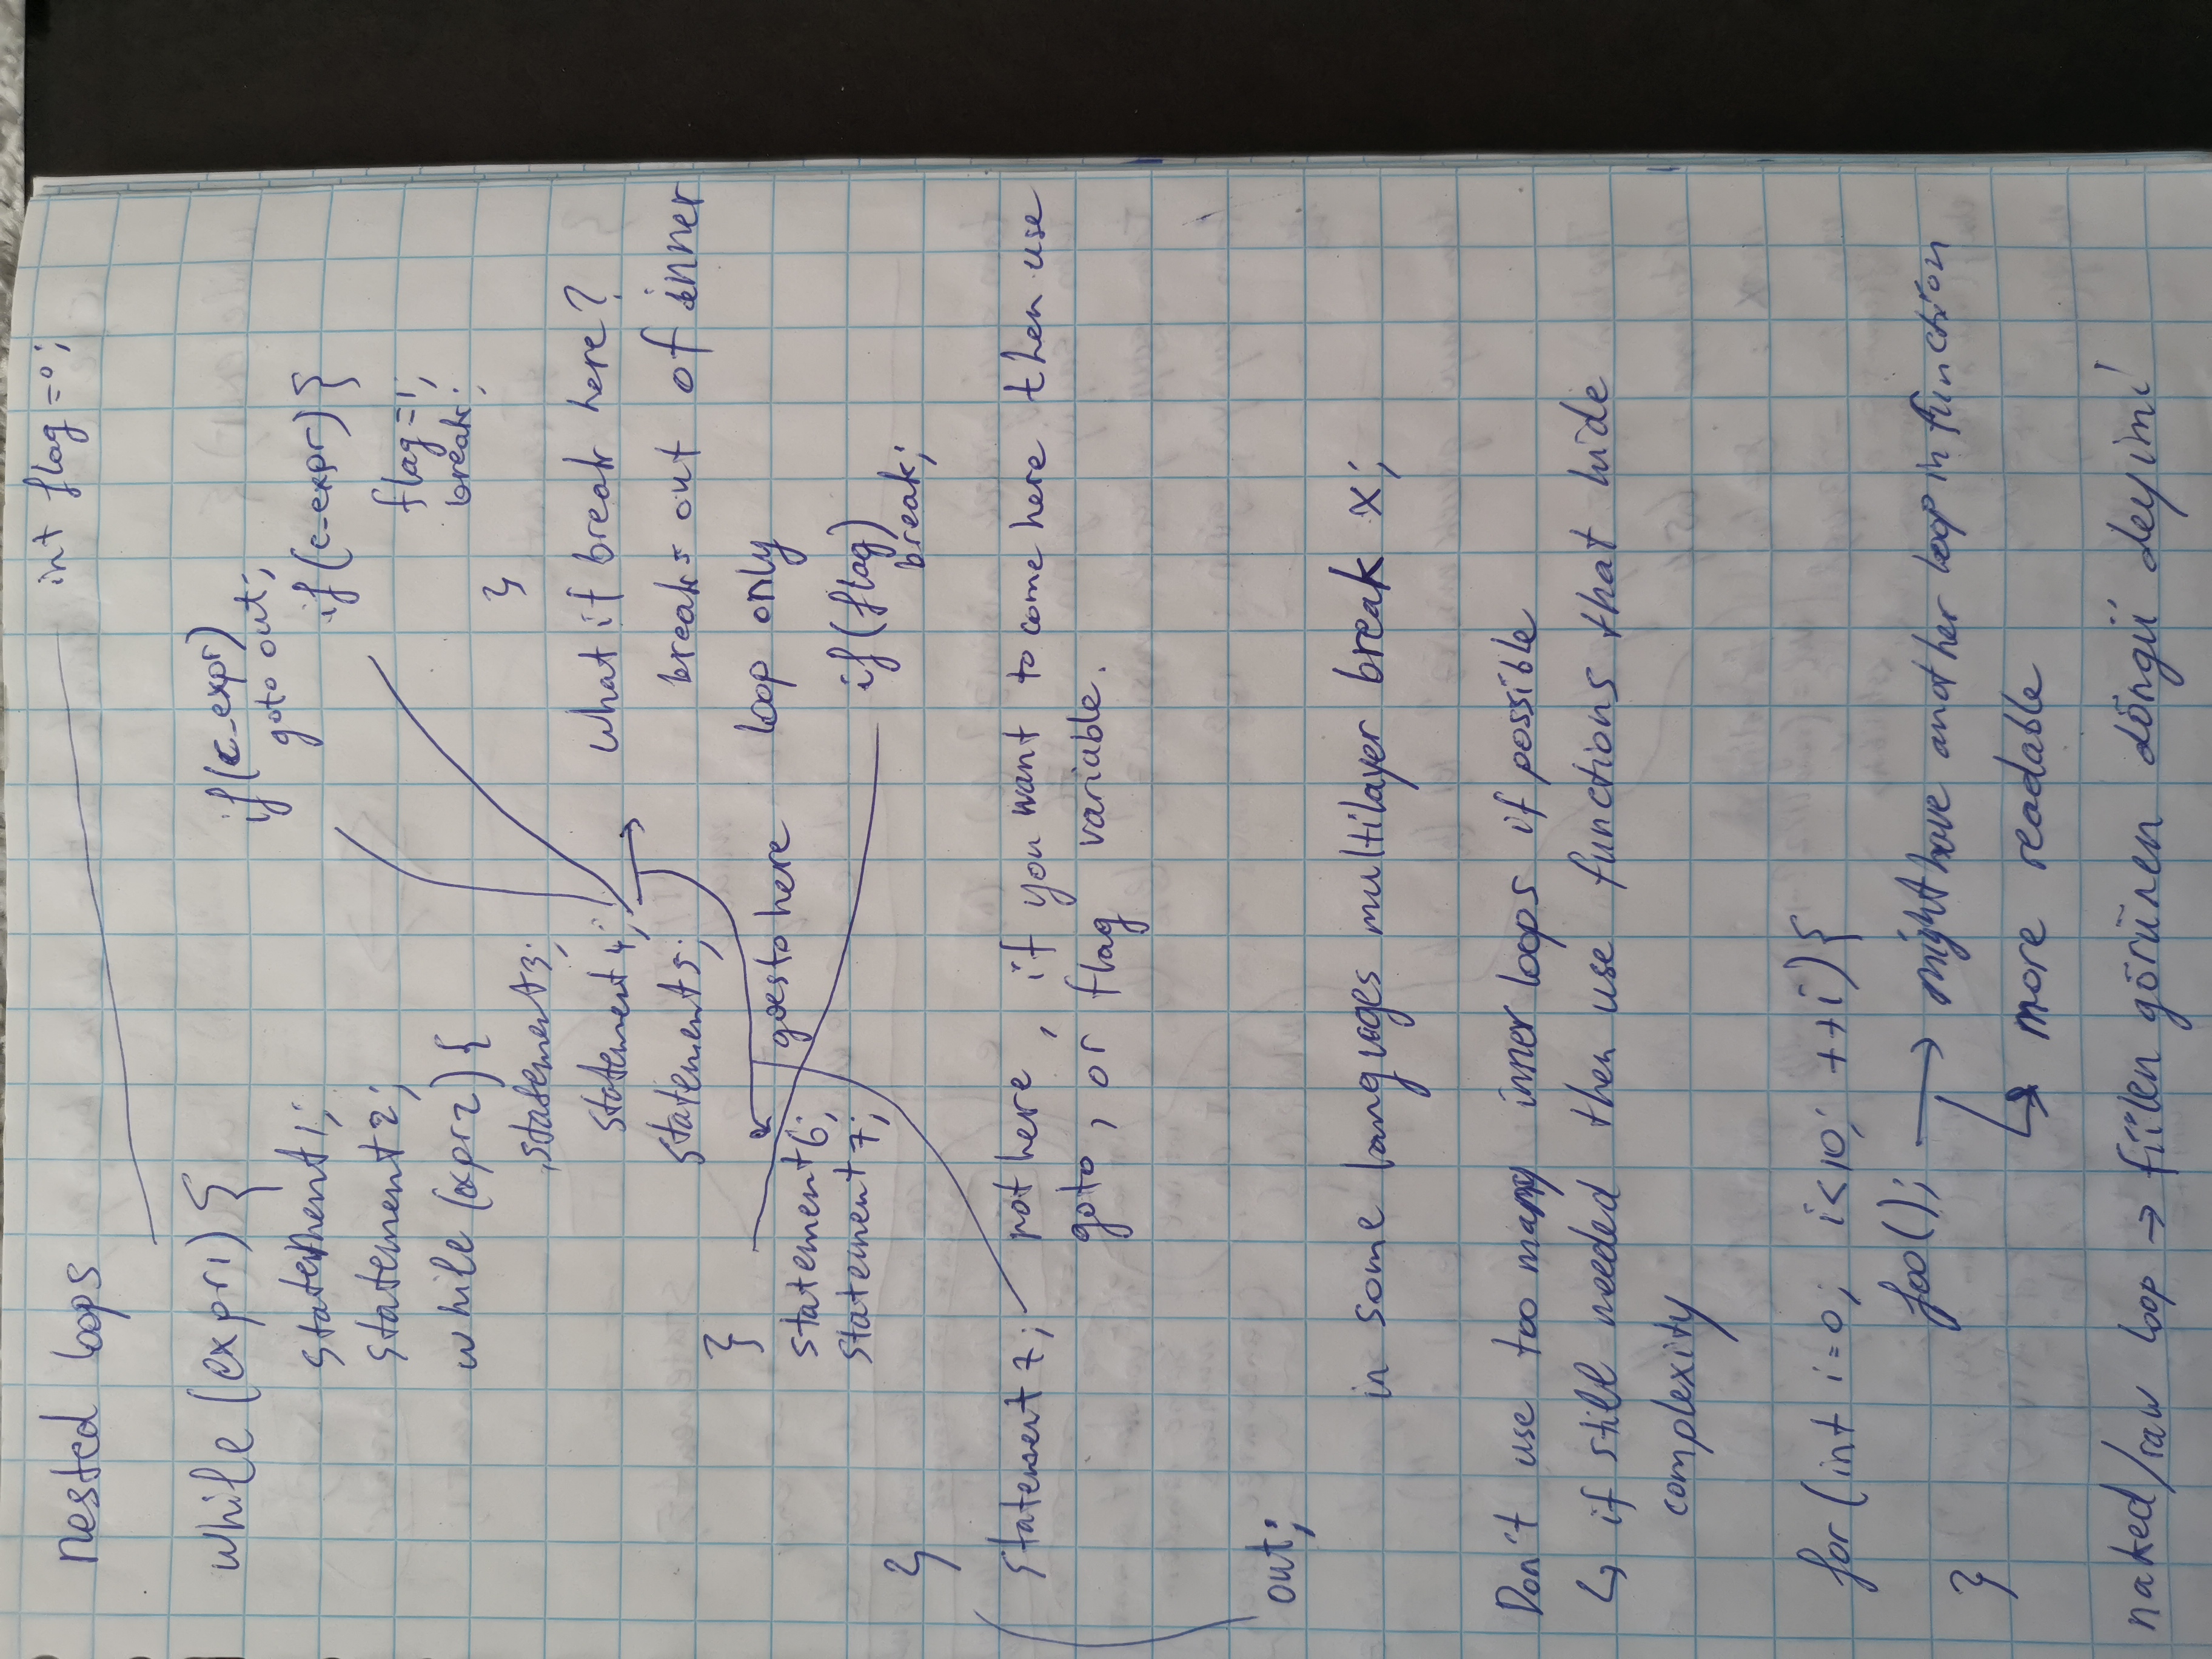 nested loops
int flag = 0;
while (expr1) {
statement1;
statement2;
while (expr2) {
statement3;
statement4;
statement5;
}
statement6;
statement7;
}
if (c_expr)
goto out;
if (c_expr) {
flag = 1;
break;
}
what if break here?
breaks out of inner
loop only
goes to here
if (flag)
break;
statement7;
not here, if you want to come here then use
goto, or flag variable.
out;
in some languages multilayer break x;
Don't use too many inner loops if possible
↳ if still needed then use functions that hide
complexity
for (int i=0; i<10; ++i) {
foo(); → might have another loop in function
↳ more readable
}
naked/raw loop → fiilen görünen döngü deyimi